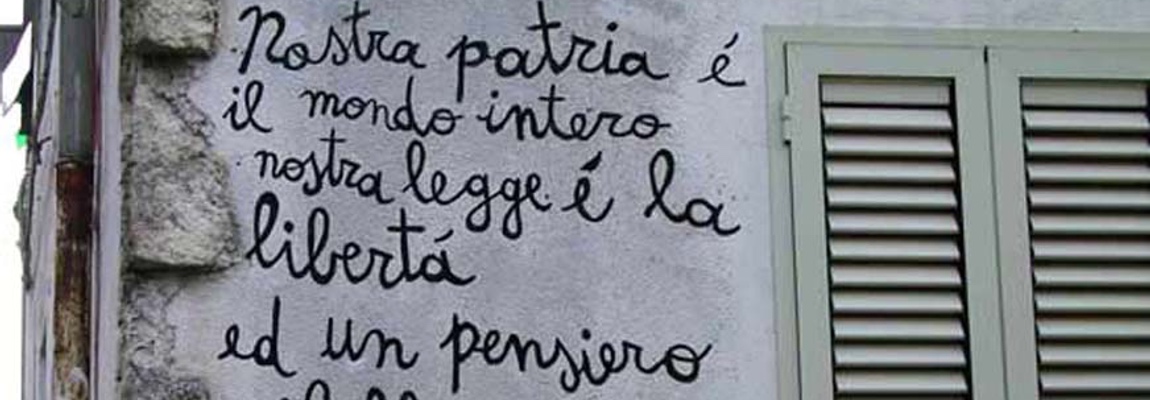 Nostra patria é
il mondo intero
nostra legge é la
libertá
ed un pensiero